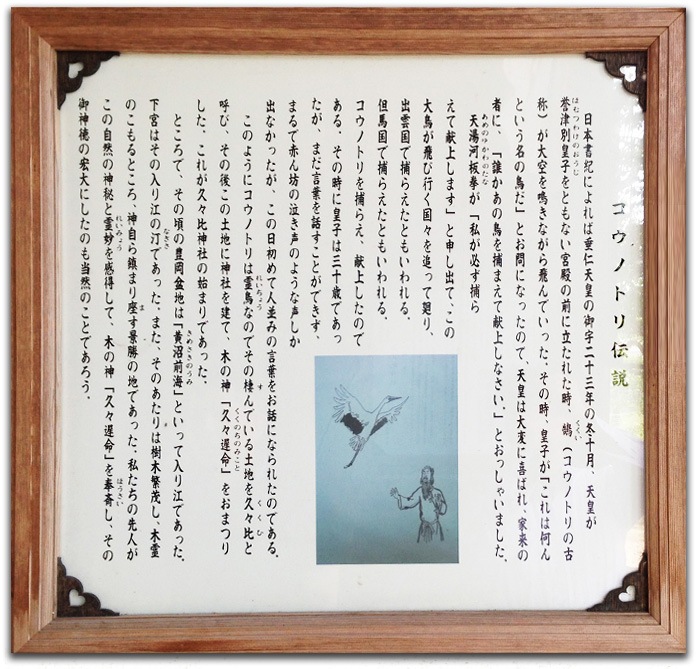 コウノトリ伝説
日本書紀によれば垂仁天皇の御宇二十三年の冬十月、天皇が
誉津別皇子をともない宮殿の前に立たれた時、鵠（コウノトリの古
称）が大空を鳴きながら飛んでいった。その時、皇子が「これは何ん
という名の鳥だ」とお問になったので、天皇は大変に喜ばれ、家来の
者に、「誰かあの鳥を捕まえて献上しなさい」とおっしゃいました。
天湯河板挙が「私が必ず捕ら
えて献上します」と申し出て、この
大鳥が飛び行く国々を追って廻り、
出雲国で捕らえたともいわれる。
但馬国で捕らえたともいわれる。
コウノトリを捕らえ、献上したので
ある。その時に皇子は三十歳であっ
たが、まだ言葉を話すことができず、
まるで赤ん坊の泣き声のような声しか
出なかったが、この日初めて人並みの言葉をお話になられたのである。
このようにコウノトリは霊鳥なのでその棲んでいる土地を久々比と
呼び、その後この土地に神社を建て、木の神「久々遅命」をおまつり
した。これが久々比神社の始まりであった。
ところで、その頃の豊岡盆地は「黄沼前海」といって入り江であった。
下宮はその入り江の汀であった。また、そのあたりは樹木繁茂し、木霊
のこもるところ、神自ら鎮まり座す景勝の地であった。私たちの先人が
この自然の神秘と霊妙を感得して、木の神「久々遅命」を奉斎し、その
御神徳の宏大にしたのも当然のことであろう。